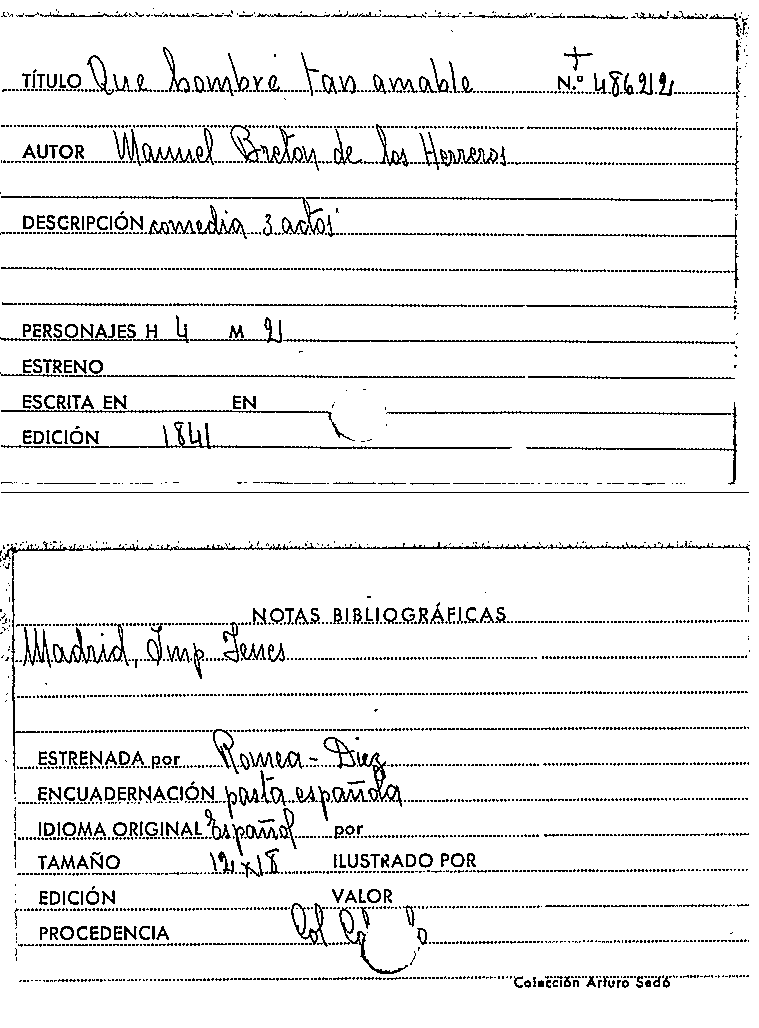 TÍTULO Que hombre tan amable N.º 48622
AUTOR Manuel Breton de los Herreros
DESCRIPCIÓN comedia 3 actos
PERSONAJES H 4 M 2
ESTRENO
ESCRITA EN EN
EDICIÓN 1841
NOTAS BIBLIOGRÁFICAS
Madrid, Imp Yenes
ESTRENADA por Romea - Diez
ENCUADERNACIÓN pasta española
IDIOMA ORIGINAL Español por
TAMAÑO 12 x 18 ILUSTRADO POR
EDICIÓN VALOR
PROCEDENCIA Col
Colección Arturo Sedó